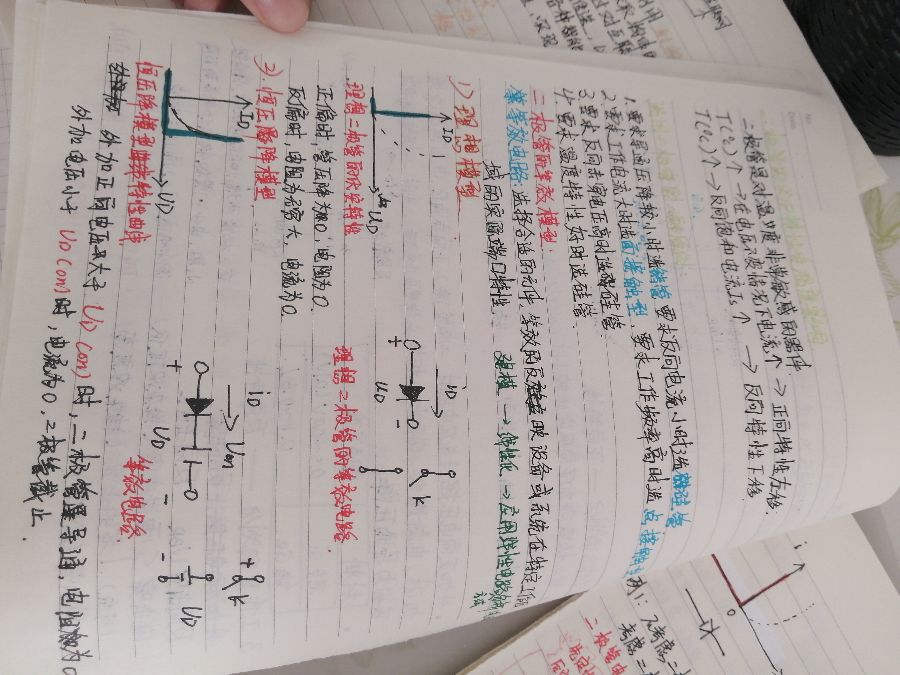 二极管是对温度非常敏感的器件
T(℃)个 → 在电压不变情况下电流个 → 正向特性左移.
T(℃)个 → 反向饱和电流Is 个 → 反向特性下移.
1.要求导通压降较小时选锗管,要求反向电流小时选硅管
2.要求工作电流大时选面接触型,要求工作频率高时选点接触
3.要求反向击穿电压高时选硅管
4.要求温度特性好时选硅管.
二.二极管的等效模型.
等效电路:选择合适的元件,等效的反映设备或系统在特定工作
域的实际端口特性.
建模 → 线性化 → 应用线性电路
1) 理想模型
ID
UD
iD
+ UD -
K
理想二极管的伏安特性
理想二极管的等效电路.
正偏时,管压降为0,电阻为0.
反偏时,电阻为无穷大,电流为0.
2) 恒压降模型
ID
UD
iD
Uon
+ UD -
K
UD
恒压降模型特性曲线
等效电路.
外加正向电压大于 UD(on)时,二极管导通,电阻为0
外加电压小于 UD(on)时,电流为0,2极管截止.
i
0
二极管